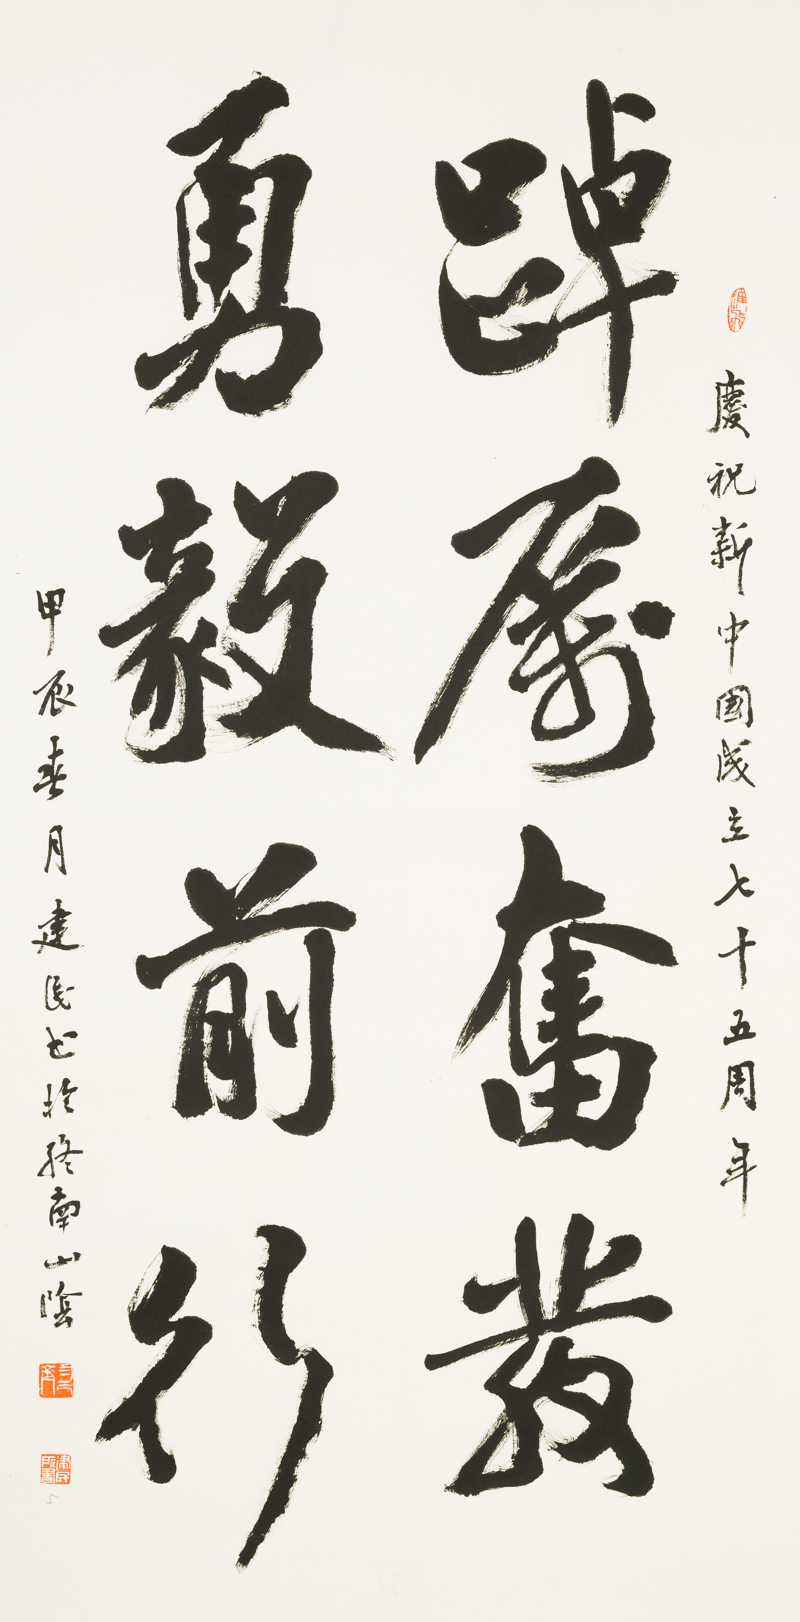 慶祝新中國成立七十五周年
踔厲奮發
勇毅前行
甲辰春月建民書於終南山陰